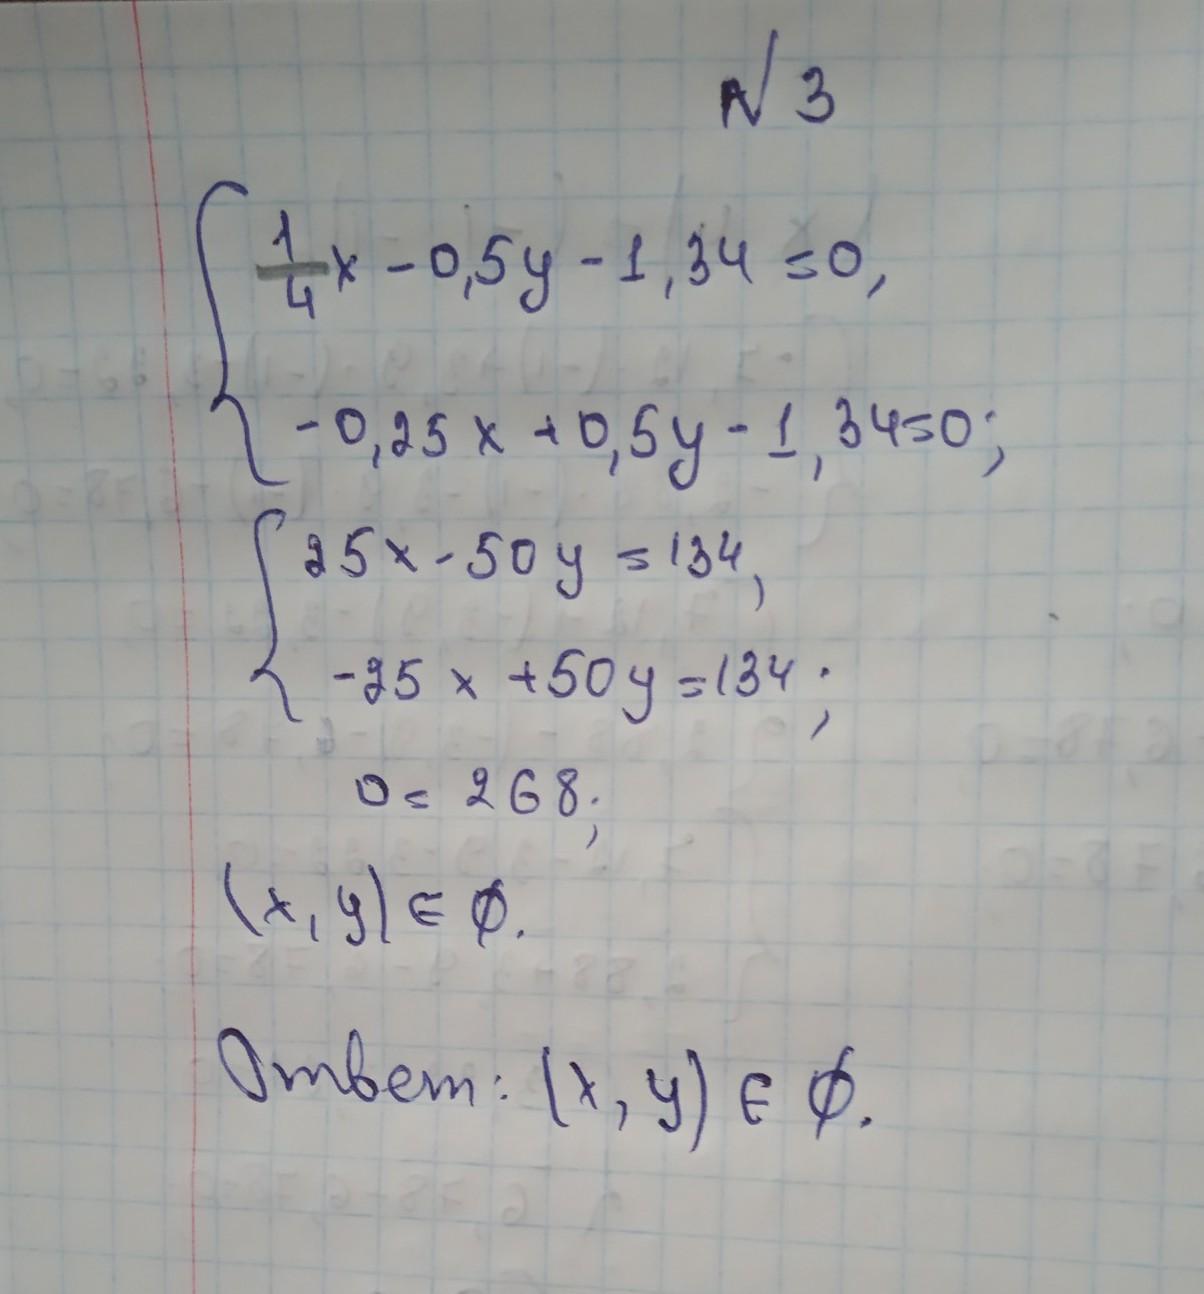 № 3
1/4 x - 0,5y - 1,34 = 0,
-0,25x + 0,5y - 1,34 = 0;
25x - 50y = 134,
-25x + 50y = 134;
0 = 268;
(x, y) ∈ ∅.
Ответ: (x, y) ∈ ∅.